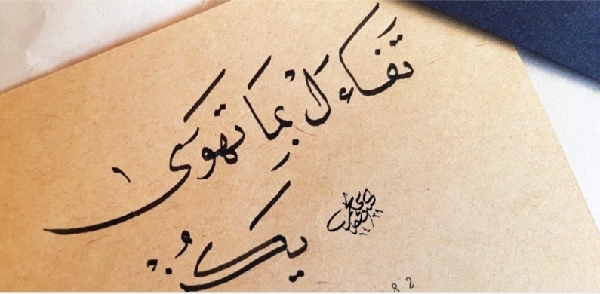 تَفاءَلْ بِمَا تَهوَى
يَكُنْ
82